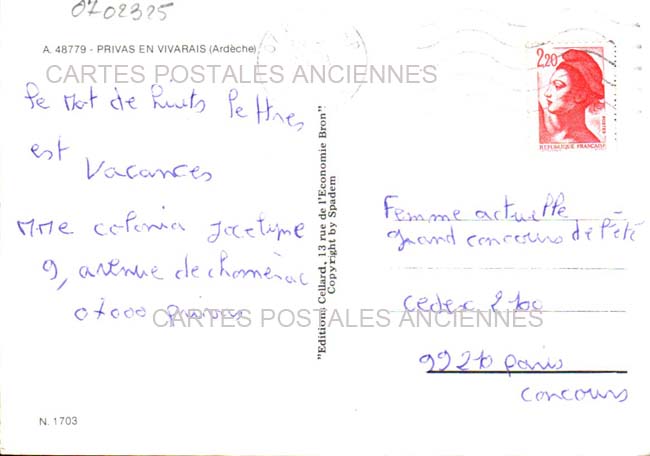 0702325
A. 48779 - PRIVAS EN VIVARAIS (Ardèche)
CARTES POSTALES ANCIENNES
le Mot de huits lettres
est
Vacances
MMe colonia Jocelyne
9, avenue de chomérac
07000 privas
CARTES POSTALES ANCIENNES
N. 1703
"Editions Cellard, 13 rue de l'Economie Bron"
Copyright by Spadem
2,20
REPUBLIQUE FRANÇAISE
Femme actuelle
grand concours de l'été
cedex 2100
99210 paris
concours